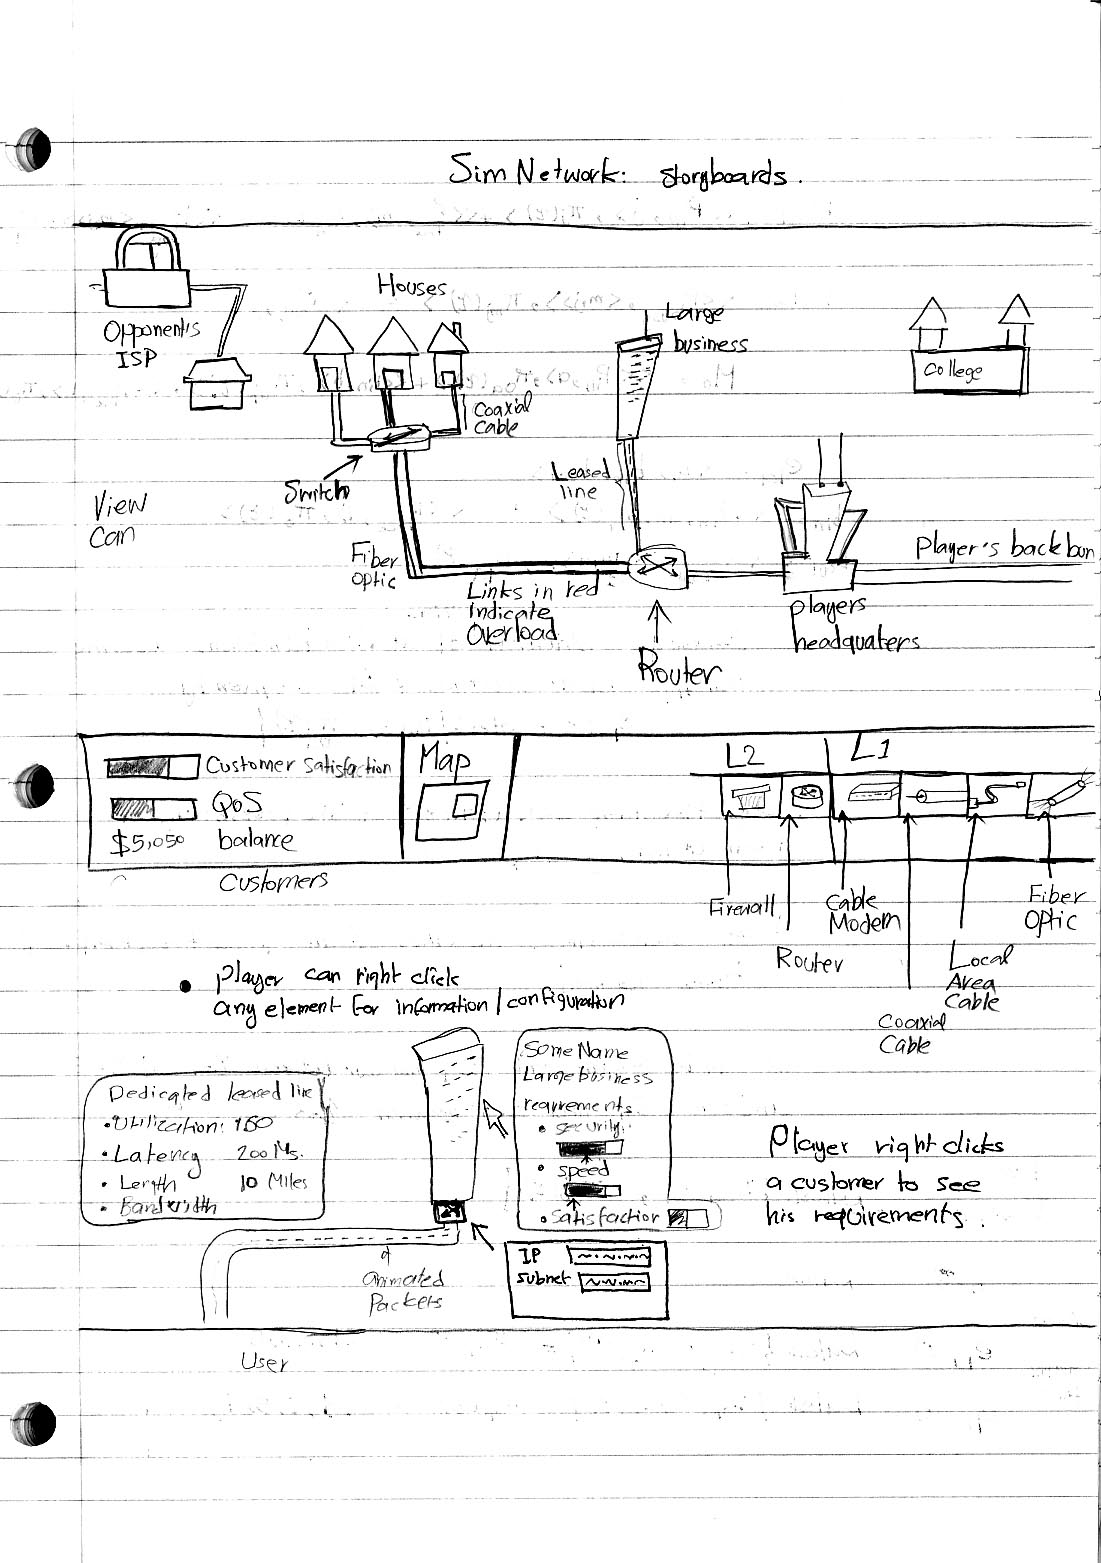 Sim Network: storyboards.
Opponent's
ISP
Houses
Large
business
College
Coaxial
Cable
Switch
Leased
line
View
Can
Fiber
optic
Links in red
Indicate
Overload
Router
Player's backbon
players
headquaters
Customer Satisfaction
QoS
$5,050 balance
Map
L2
L1
Customers
Firewall
Router
Cable
Modem
Coaxial
Cable
Local
Area
Cable
Fiber
Optic
• player can right click
any element for information/configuration
Dedicated leased line
• Utilization: 100
• Latency 200 Ms.
• Length 10 Miles
• Bandwidth
Some Name
Large business
requirements
• security:
• speed
• Satisfaction
IP
subnet
animated
Packets
Player right clicks
a customer to see
his requirements.
User